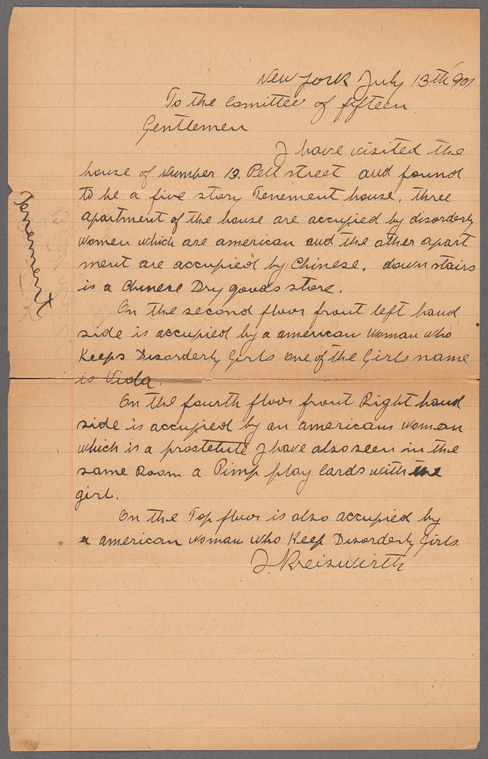 New York July 13th 1901
To the Comittee of fifteen
Gentlemen
I have visited the
house of Number 13 Pell street and found
to be a five story Tenement house, three
apartment of the house are accupied by disorderly
women which are american and the other apart
ment are accupied by Chinese, down stairs
is a Chinese Dry goods store.
On the second floor front left hand
side is accupied by a american woman who
Keeps Disorderly Girls one of the Girls name
is Viola.
On the fourth floor front Right hand
side is accupied by an american woman
which is a prostetute I have also seen in the
same Room a Pimp play cards with the
girl.
On the Top floor is also accupied by
a american woman who Keep Disorderly Girls
J. Kreiswirth
Tenement